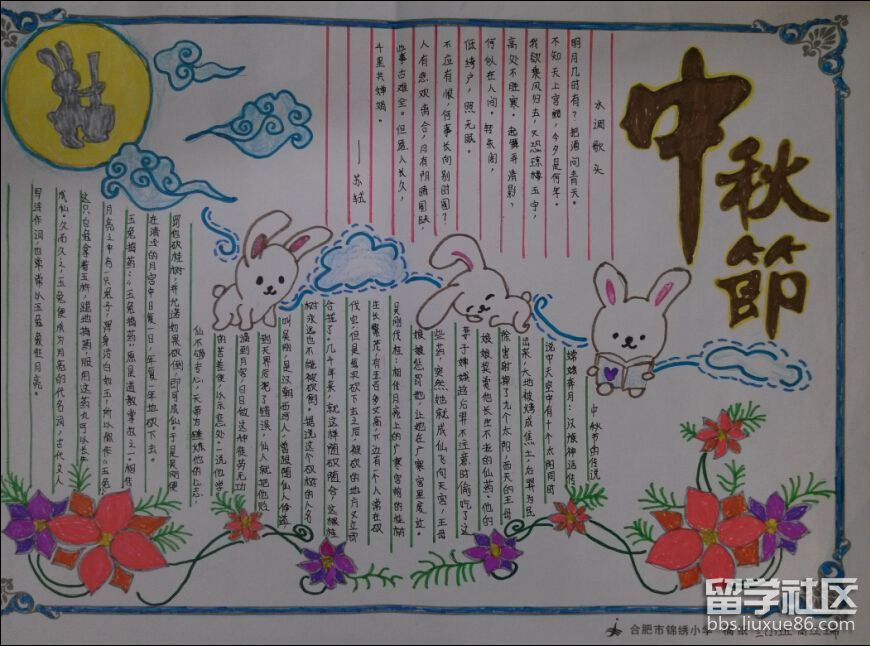 中秋節
水调歌头
明月几时有？把酒问青天。
不知天上宫阙，今夕是何年。
我欲乘风归去，又恐琼楼玉宇，
高处不胜寒。起舞弄清影，
何似在人间。转朱阁，
低绮户，照无眠。
不应有恨，何事长向别时圆？
人有悲欢离合，月有阴晴圆缺，
此事古难全。但愿人长久，
千里共婵娟。
——苏轼
中秋节的传说
嫦娥奔月：汉族神话传
说中天空中有十个太阳同时
出来，大地被烤成焦土，后羿为民
除害射掉了九个太阳，西天的王母
娘娘奖赏他长生不老的仙药。他的
妻子嫦娥趁后羿不注意时偷吃了这
些药，突然她就成仙飞向天宫，王母
娘娘惩罚他，让她在广寒宫里度过。
吴刚伐桂：相传月亮上的广寒宫前的桂树
生长繁茂，有五百多丈高，下边有个人常在砍
伐它，但是每次砍下去之后，被砍的地方又立即
合拢了。几千年来，就这样随砍随合，这棵桂
树永远也不能被砍倒。据说这个砍树的人名
叫吴刚，是汉朝西河人，曾跟随仙人修道
到天界后犯了错误，仙人就把他贬
谪到月宫，日日做这种徒劳无功
的苦差使，以示惩处。一说他学
仙不够专心，天帝为锤炼他的心志
罚他砍桂树，并允诺如果砍倒，即可成仙。于是吴刚便
在清冷的月宫中日复一日，年复一年地砍下去。
玉兔捣药：玉兔捣药，原是道教掌故之一。相传
月亮之中有一只兔子，浑身洁白如玉，所以称作“玉兔
这只白兔拿着玉杵，跪地捣药，服用这药丸可以长生
成仙。久而久之，玉兔便成为月亮的代名词，古代文人
写诗作词，也常常以玉兔象征月亮。
合肥市锦绣小学
留学社区
bbs.liuxue86.com